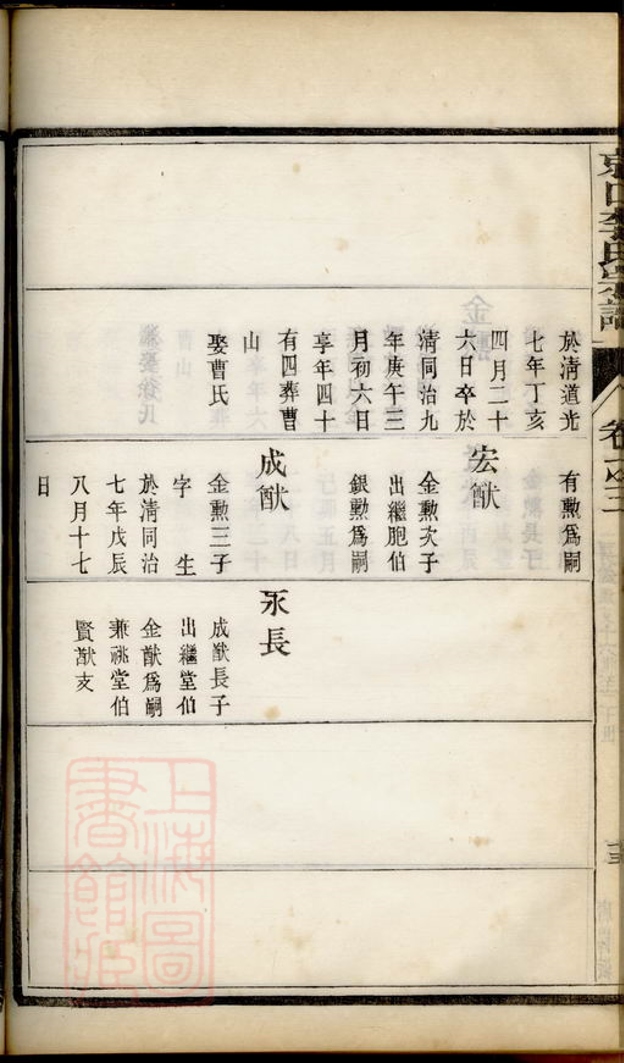 京口李氏宗譜
卷之三
於清道光
七年丁亥
四月二十
六日卒於
清同治九
年庚午三
月初六日
享年四十
有四葬曹
山
娶曹氏
有勲爲嗣
宏猷
金勲次子
出繼胞伯
銀勲爲嗣
成猷
金勲三子
字 生
於清同治
七年戊辰
八月十七
日
永長
成猷長子
出繼堂伯
金猷爲嗣
兼祧堂伯
賢猷支
上海圖
書館藏